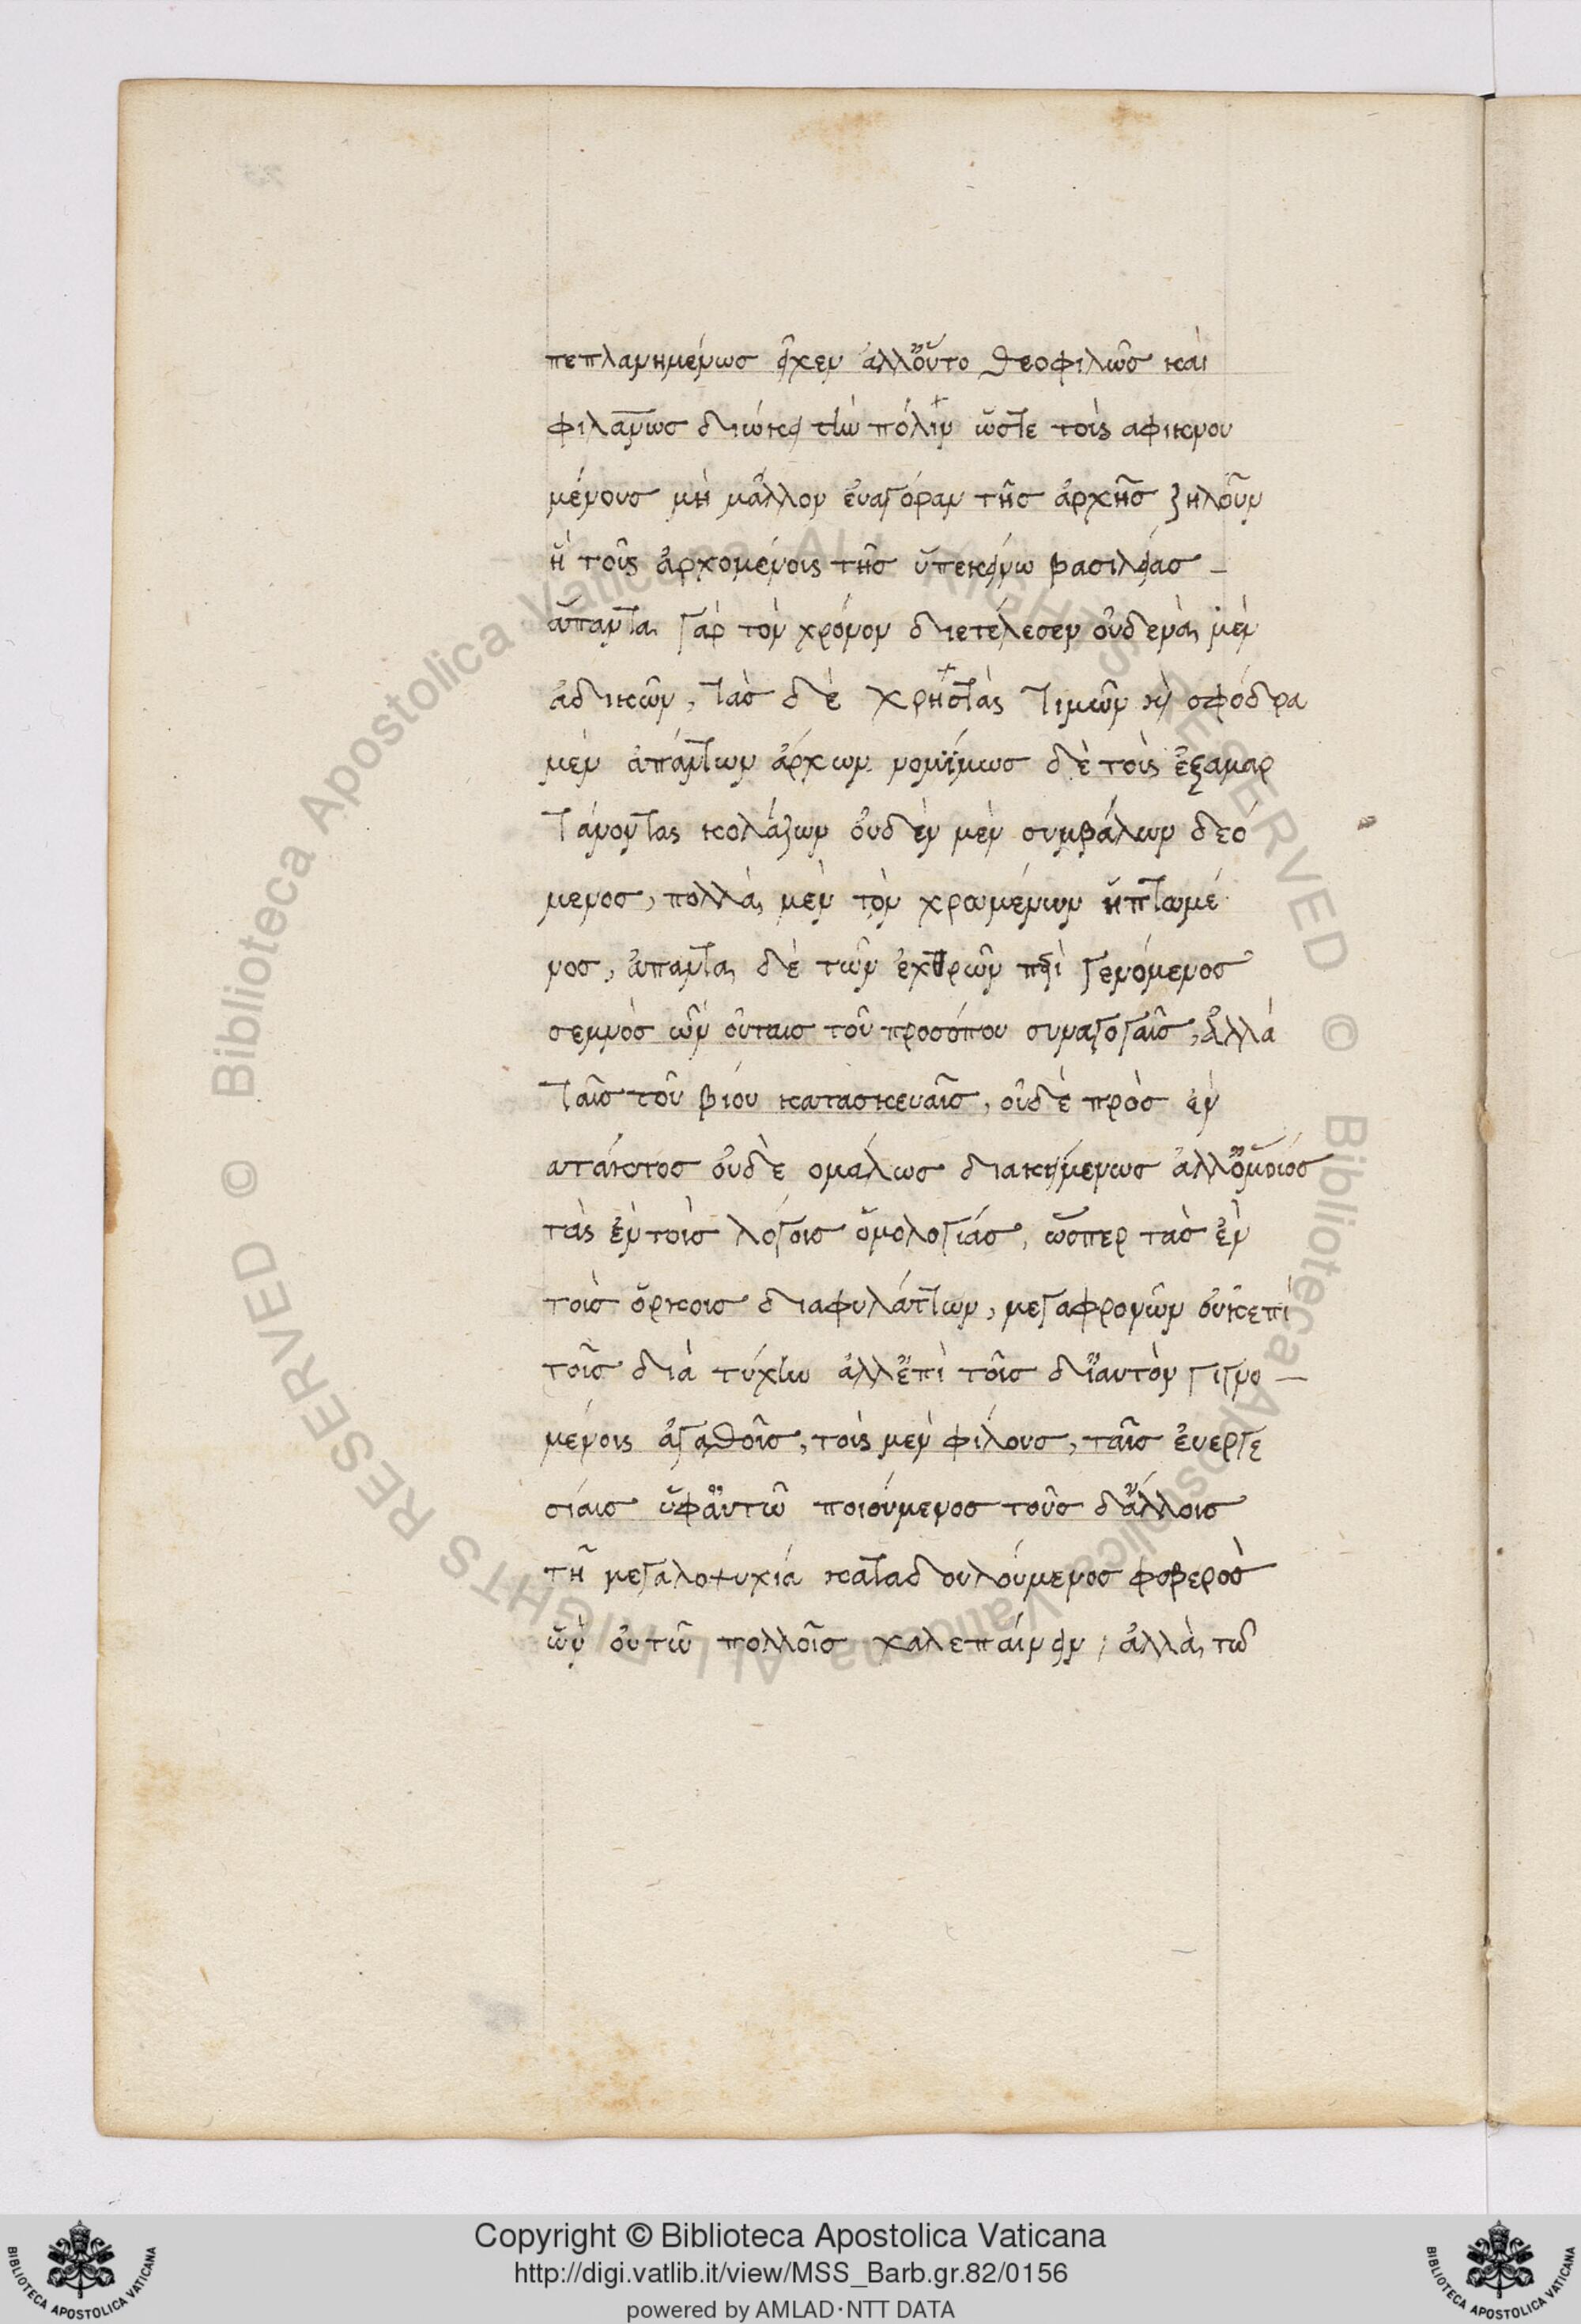 πεπλανημένως εἶχεν ἀλλ' οὕτο θεοφιλῶς καὶ
φιλανωσ διώκει τὴν πόλιν ὥστε τοὶς αφικνου
μένους μὴ μᾶλλον ἐυαγόραν τῆς ἀρχῆς ζηλοῦν
ἢ τοῖς ἀρχομένοις τῆς ὑπεκείνω βασιλείας –
ἅπαντα γὰρ τὸν χρόνον διετέλεσεν οὐδενὰ μὲν
ἀδικῶν, τὰσ δὲ χρηστὰς τιμῶν κὶ σφόδρα
μὲν ἀπάντων ἄρχων νομίμωσ δὲ τοὶς ἐξαμαρ
τάνοντας κολάζων ὀυδὲν μὲν συμβάλων δεό
μενος, πολλὰ μὲν τὸν χρωμένων ἡπτωμέ
νος, ἁπαντα δὲ τῶν ἐχθρῶν περὶ γενόμενος
σεμνὸς ὢν οὐταισ τοῦ προσόπου συναγογαῖς, ἀλλὰ
ταῖς τοῦ βίου κατασκευαῖς, οὐδὲ πρὸς ἑν
ατάκτος ὀυδὲ ομαλως διακειμενως ἀλλ' ὁμοιός
τὰς ἐν τοὶς λόγοις ὁμολογιάς, ὥσπερ τὰς ἐν
τοὶς ὅρκοις διαφυλάττων, μεγαφρονῶν οὐκ επὶ
τοῖς διὰ τύχην ἀλλ' ἐπὶ τοῖς δι' ἀυτὸν γιγνο –
μένοις ἀγαθοῖς, τοὶς μὲν φίλους, ταῖς ἐυεργε
σίαις ὑφ' ἀυτῶ ποιούμενος τοῦς δ' ἄλλοις
τῆ μεγαλοψυχιά καταδουλούμενος φοβερὸς
ὢν ὀυτῶ πολλοῖς χαλεπαίνειν, ἀλλὰ τω
Copyright © Biblioteca Apostolica Vaticana
http://digi.vatlib.it/view/MSS_Barb.gr.82/0156
powered by AMLAD·NTT DATA